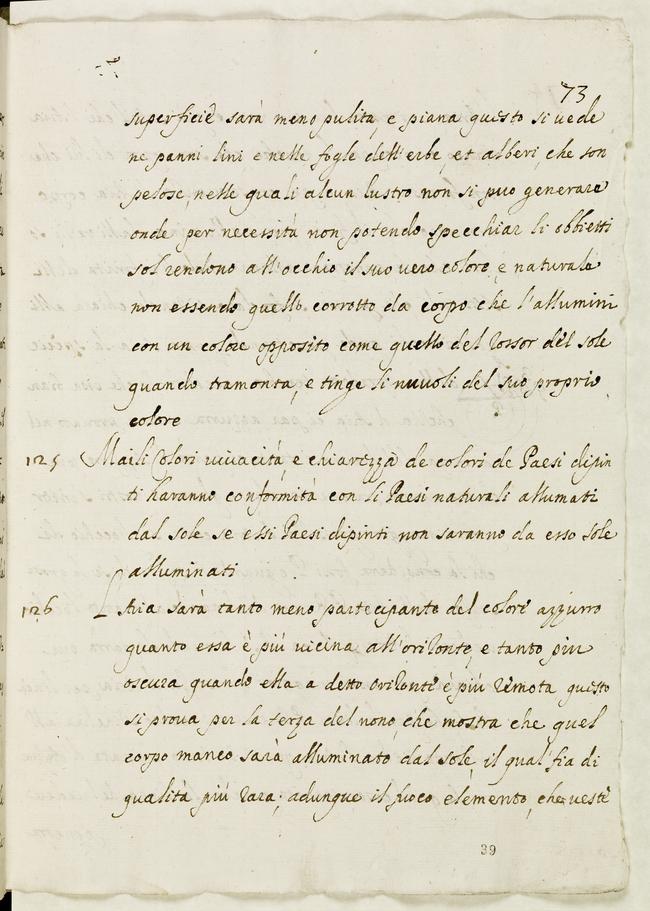 73
superficie sarà meno pulita, e piana questo si vede
ne panni lini e nelle fogle dell'erbe, et alberi, che son
pelose, nelle quali alcun lustro non si puo generare
onde per necessità non potendo specchiar li obbietti
sol rendono all'occhio il suo vero colore, e naturale
non essendo quello corrotto da corpo che l'allumini
con un colore opposito come quello del rossor del sole
quando tramonta, e tinge li nuvoli del suo proprio
colore
125 Mai li Colori vivacità, e chiarezza de colori de Paesi dipin
ti haranno conformità con li Paesi naturali allumati
dal sole se essi Paesi dipinti non saranno da esso sole
alluminati
126 L'Aria sarà tanto meno partecipante del colore azzurro
quanto essa è più vicina all'orizonte, e tanto piu
oscura quando ella a detto orizonte è più remota questo
si prova per la terza del nono, che mostra che quel
corpo manco sarà alluminato dal sole, il qual fia di
qualità più rara, adunque il fuoco elemento, che veste
39